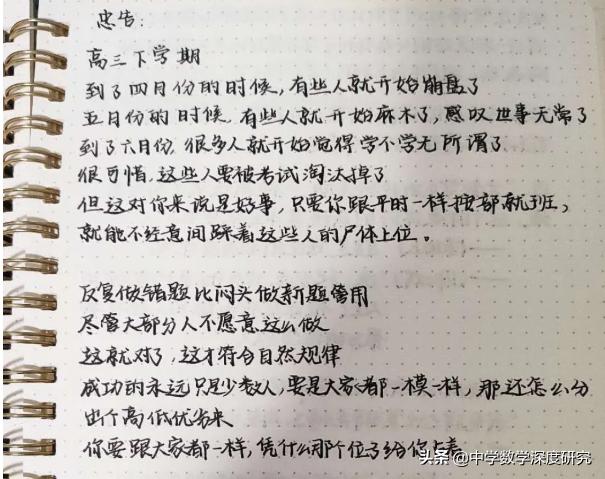 忠告：
高三下学期
到了四月份的时候，有些人就开始崩盘了
五月份的时候，有些人就开始麻木了，感叹世事无常了
到了六月份，很多人就开始觉得学不学无所谓了
很可惜，这些人要被考试淘汰掉了
但这对你来说是好事，只要你跟平时一样按部就班，
就能不经意间踩着这些人的尸体上位。
反复做错题比闷头做新题管用
尽管大部分人不愿意这么做
这就对了，这才符合自然规律
成功的永远只是少数人，要是大家都一模一样，那还怎么分
出个高低优劣来
你要跟大家都一样，凭什么那个位子给你
头条@中学数学深度研究